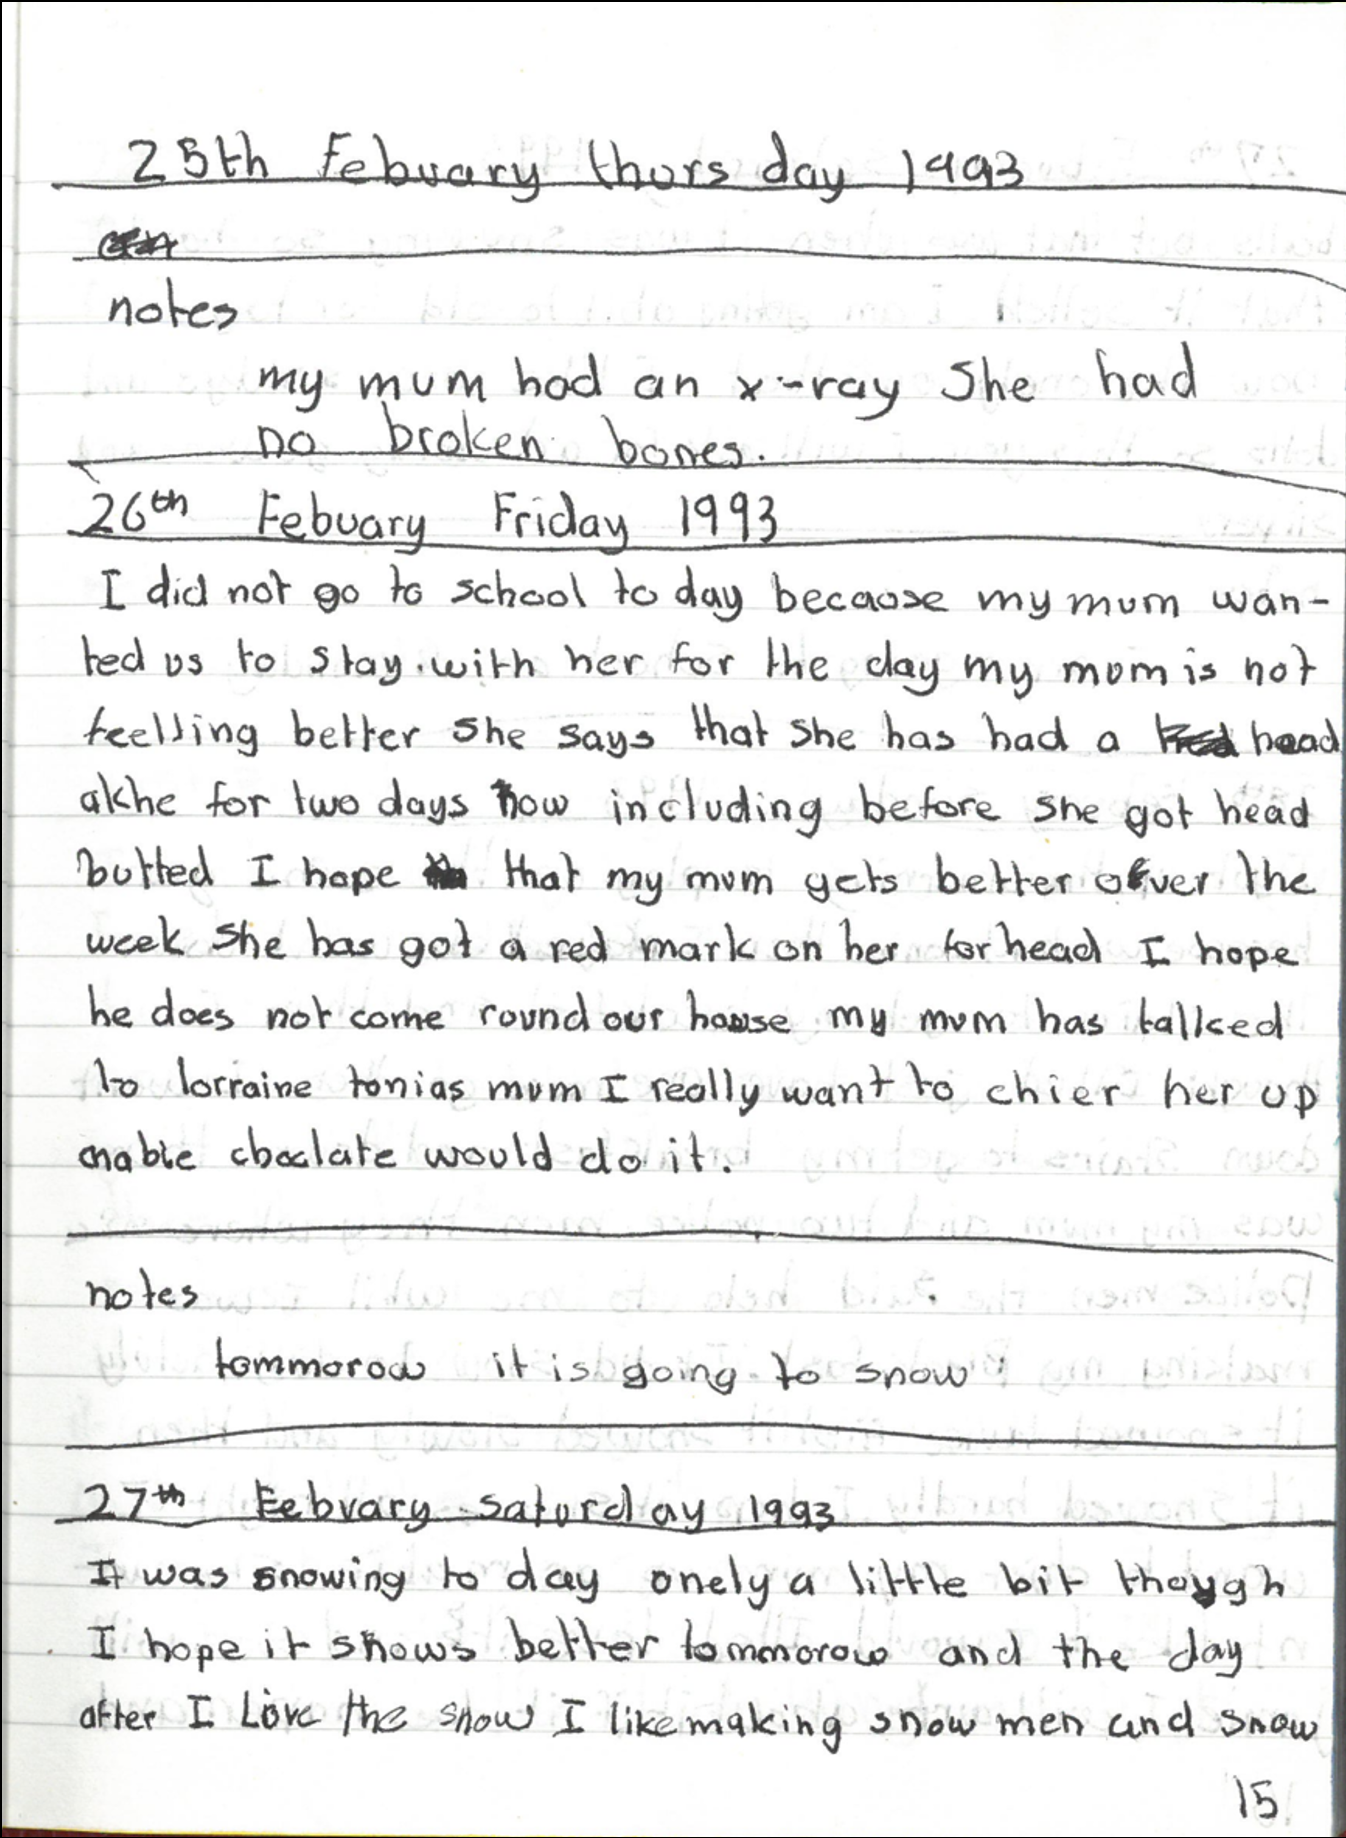 25th Febuary thursday 1993
notes
my mum had an x-ray She had
no broken bones.
26th Febuary Friday 1993
I did not go to school to day because my mum wan-
ted us to stay with her for the day my mum is not
feelling better She says that She has had a head
akhe for two days now including before She got head
butted I hope that my mum gets better over the
week She has got a red mark on her forhead I hope
he does not come round our house my mum has talked
to lorraine tonias mum I really want to chier her up
mabie choclate would do it.
notes
tommorow it is going to snow
27th Febuary saturday 1993
It was snowing to day onely a little bit though
I hope it snows better tommorow and the day
after I Love the snow I like making snow men and snow
15